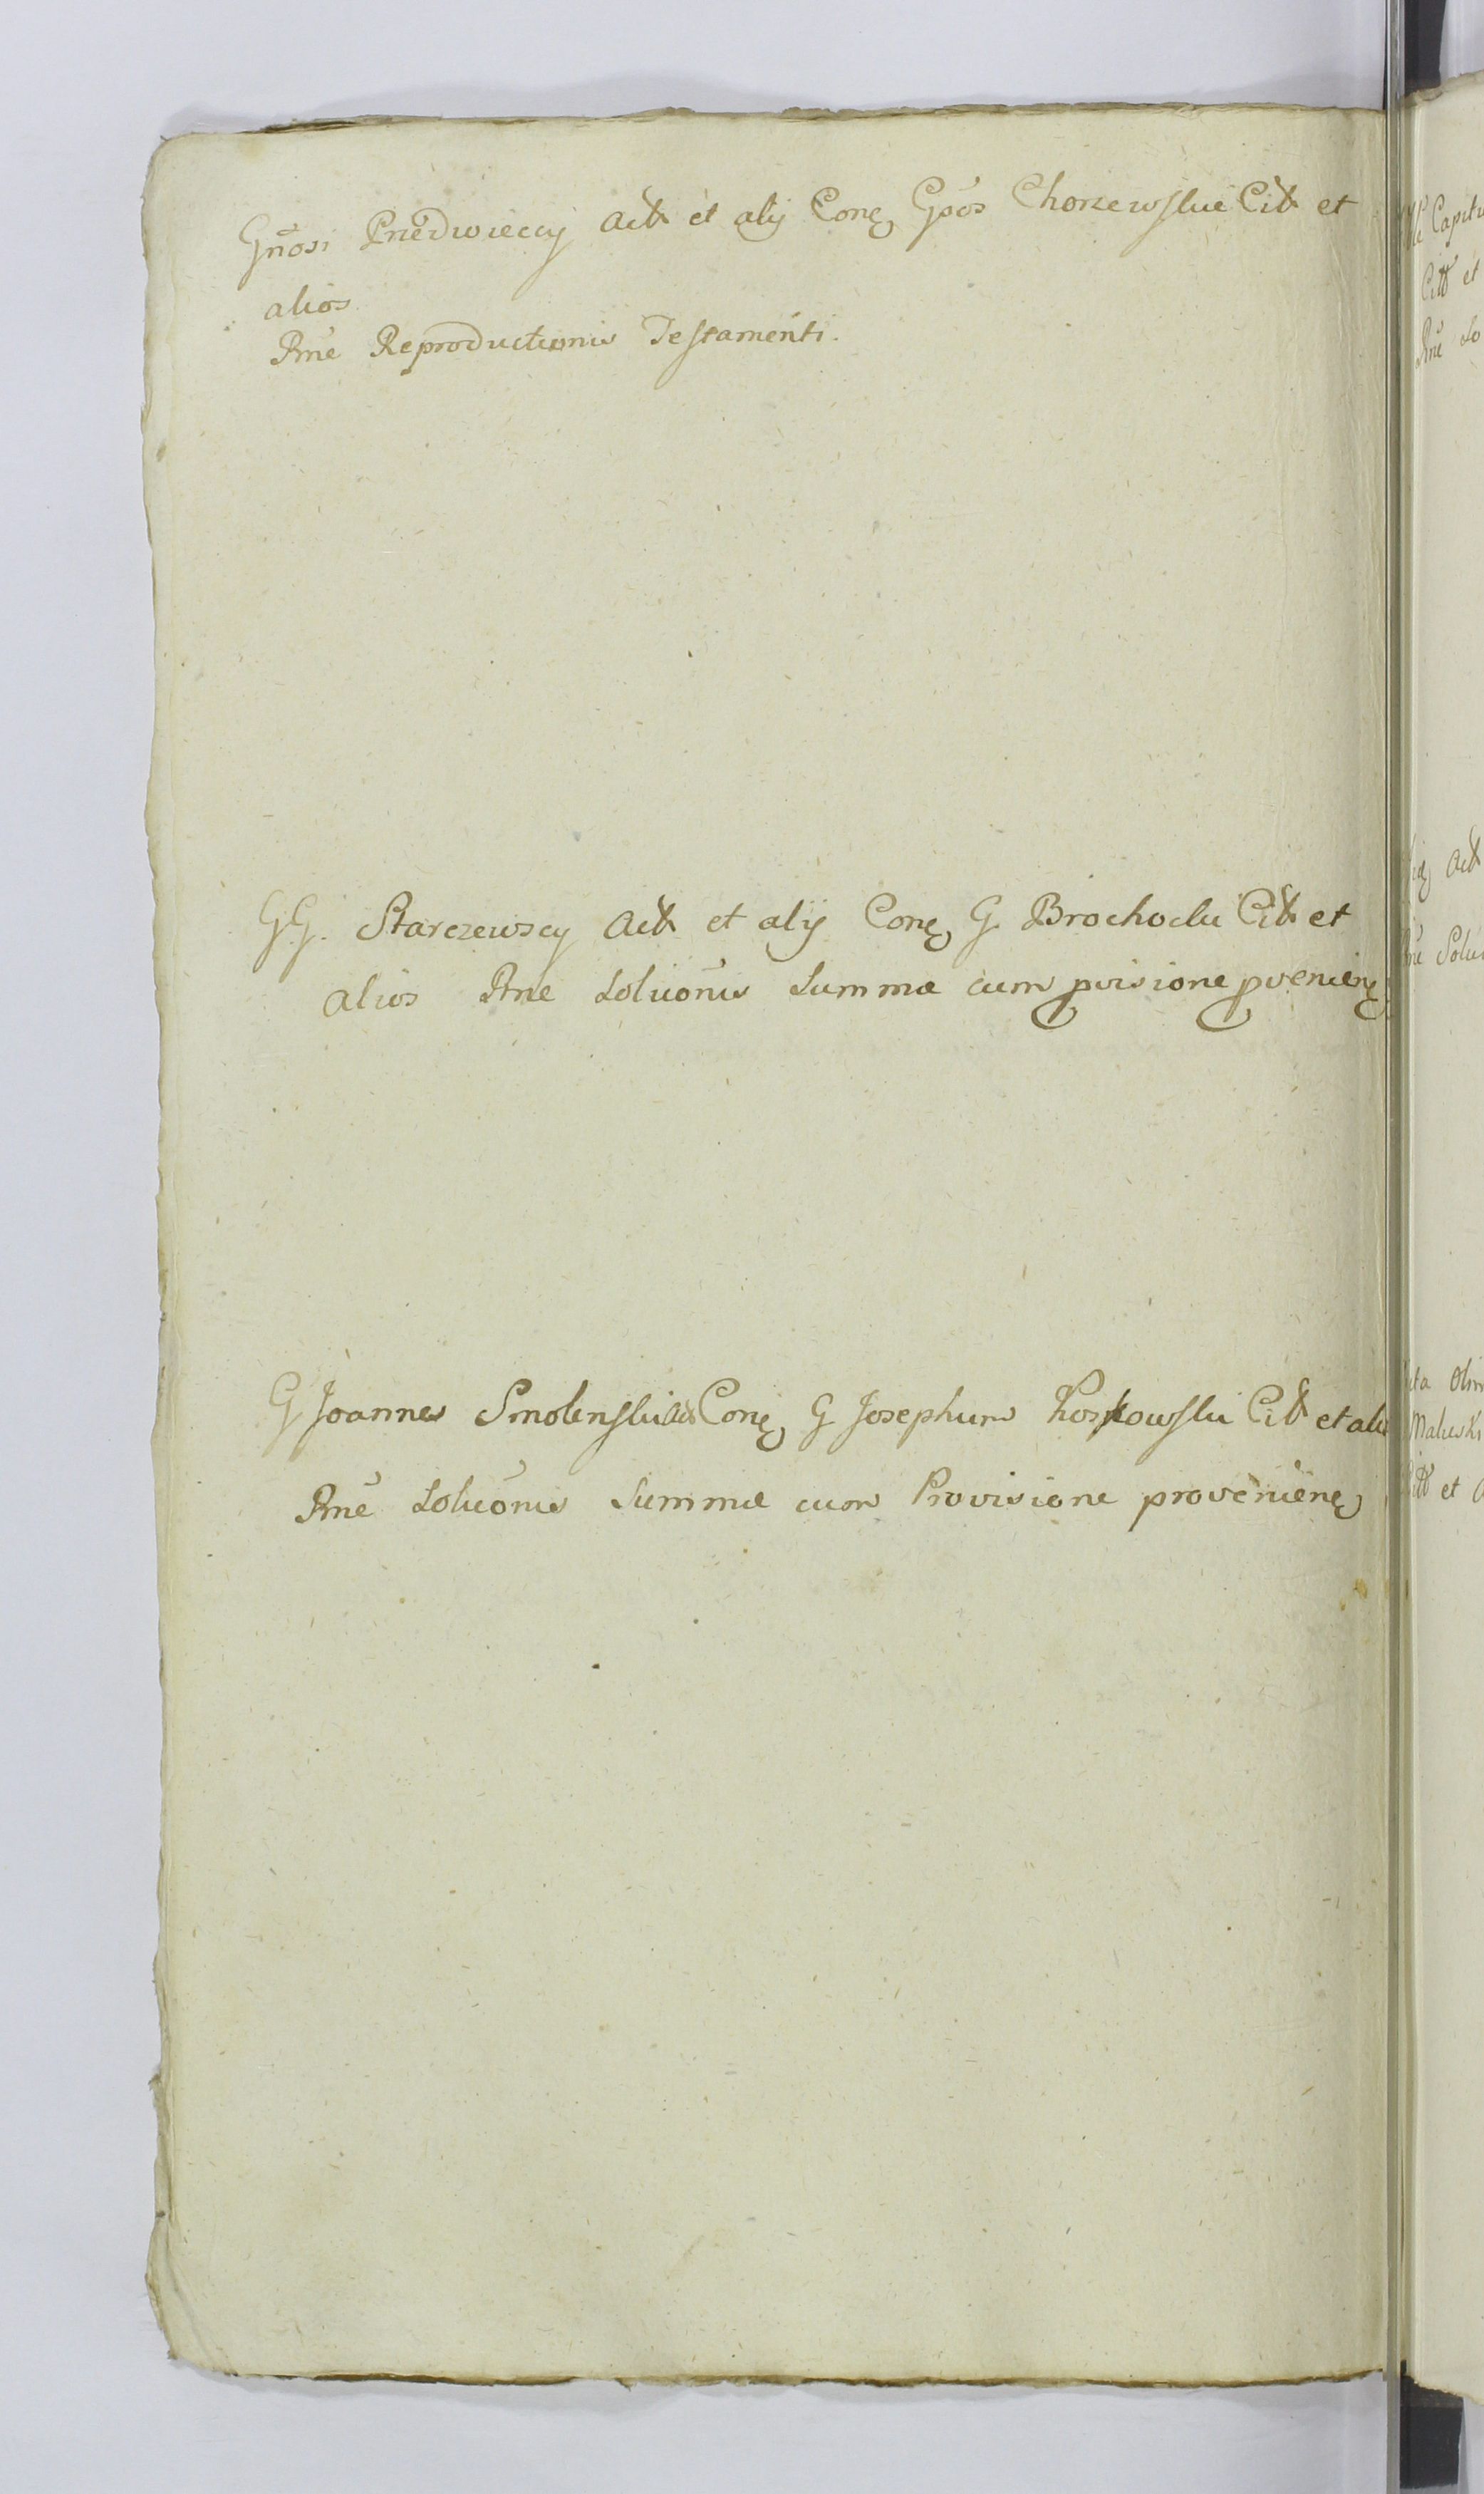 Gnosi Przedwieccy Actt et alij Conq Gsos Chorzewskie Citt et
alios
Rñe Reproductionis Testamenti.
GG. Starczewscy Actt et alij Conq G Brochocki Citt et
alios Rñe Soluõnis Summæ cum pvisione pvenienq
G Joannes Smolenski Act Conq G Josephum Koskowski Citt et alios
Rñe Soluõnis Summæ cum Provisione provenienq
Capitu
Citt et
Rñe So
Actt
Rñe Solu
Olim
Maluski
Citt et